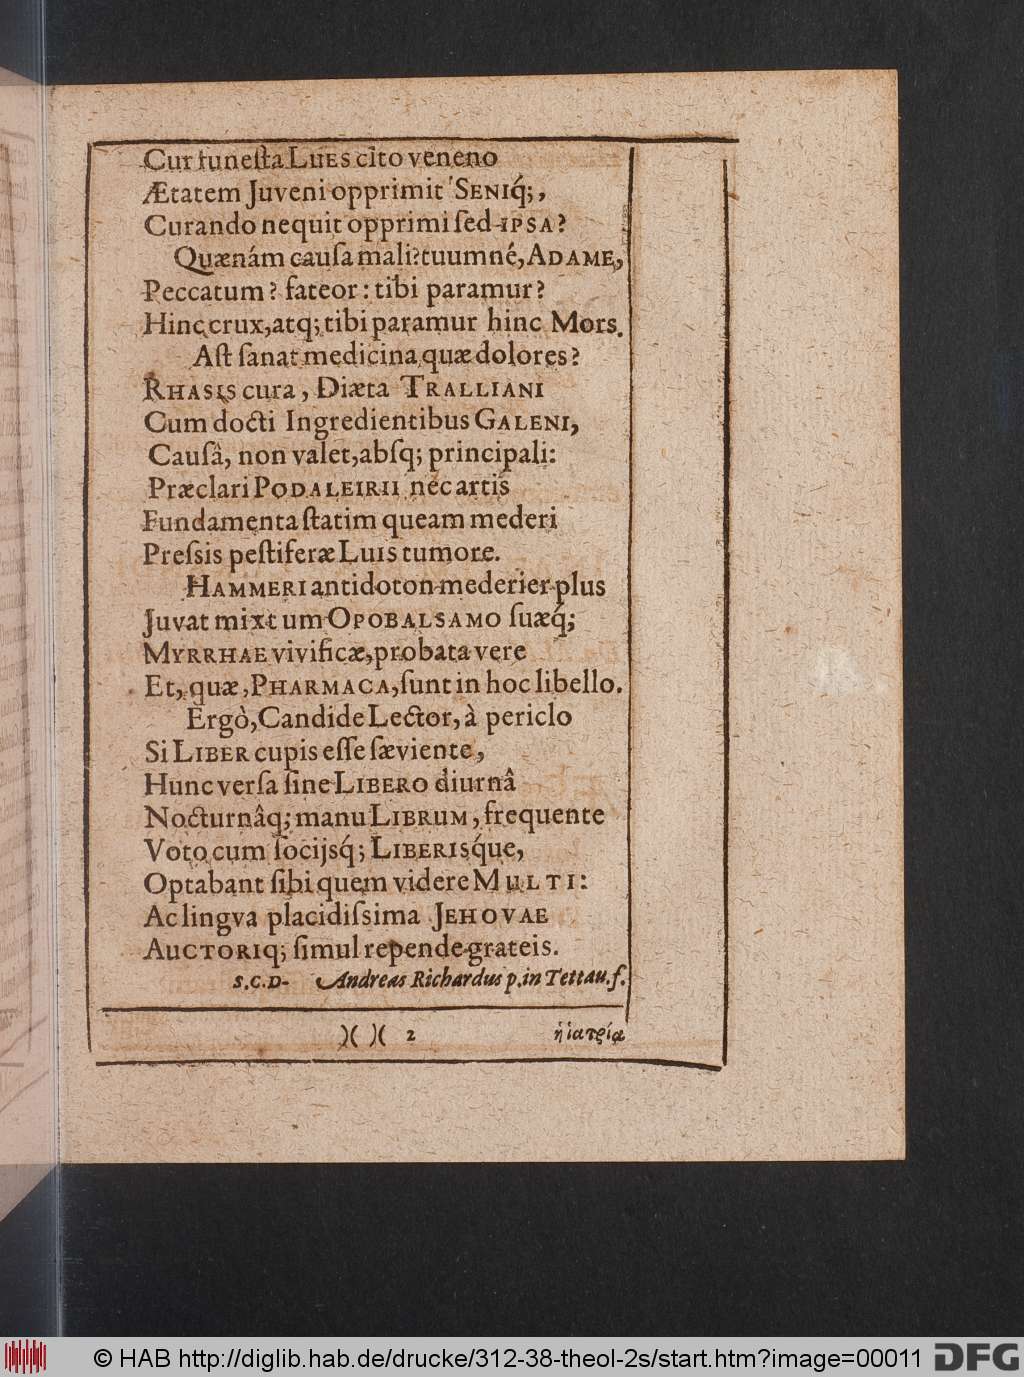 Cur funeſta LUES cito veneno
Ætatem Juveni opprimit SENIq́;,
Curando nequit opprimi ſed IPSA?
Quænám cauſa mali? tuumné, ADAME,
Peccatum? fateor: tibi paramur?
Hinc crux, atq; tibi paramur hinc Mors.
Aſt ſanat medicina quæ dolores?
RHASIS cura, Diæta TRALLIANI
Cum docti Ingredientibus GALENI,
Cauſâ, non valet, abſq; principali:
Præclari PODALEIRII nec artis
Fundamenta ſtatim queam mederi
Preſsis peſtiferæ LUIS tumore.
HAMMERI antidoton mederier plus
Juvat mixtum OPOBALSAMO ſuæq́;
MYRRHAE vivificæ, probata vere
Et, quæ, PHARMACA, ſunt in hoc libello.
Ergò, Candide Lector, à periclo
Si LIBER cupis eſſe ſæviente,
Hunc verſa ſine LIBERO diurnâ
Nocturnâq; manu LIBRUM, frequente
Voto cum ſocijsq́; LIBERIsq́ue,
Optabant ſibi quem videre MULTI:
Ac lingva placidiſsima JEHOVAE
AUCTORIq; ſimul repende grateis.
S.C.D. Andreas Richardus p. in Tettau. f.
)( )( 2 ἡ ἰατρία
© HAB http://diglib.hab.de/drucke/312-38-theol-2s/start.htm?image=00011 DFG